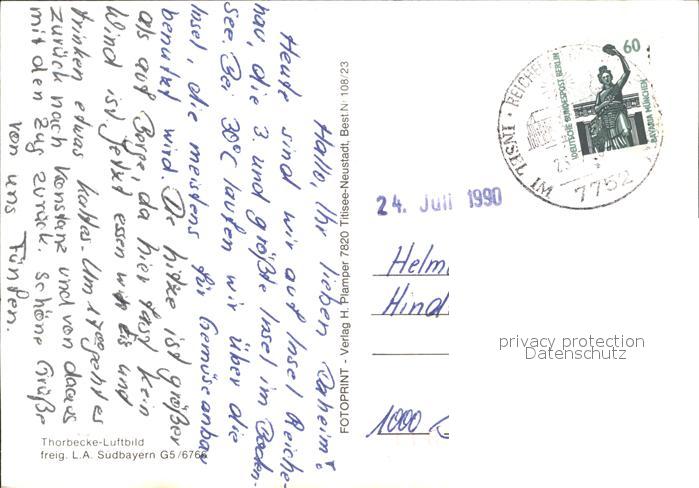 Hallo, Ihr lieben Daheim!
Heute sind wir auf Insel Reiche-
nau, die 3. und größte Insel im Boden-
see. Bei 30°C laufen wir über die
Insel, die meistens für Gemüseanbau
benutzt wird. Die hitze ist größer
als auf Borge, da hier fast kein
Wind ist. Jetzt essen wir Eis und
trinken etwas kaltes. Um 17 00 geht es
zurück nach Konstanz und von da aus
mit den Zug zurück. schöne Grüße
von uns Fünfen.
FOTOPRINT - Verlag H. Plamper 7820 Titisee-Neustadt, Best.Nr. 108/23
Thorbecke-Luftbild
freig. L.A. Südbayern G5/6766
60
DEUTSCHE BUNDESPOST BERLIN
BAVARIA MÜNCHEN
INSEL IM
REICHE
7752
24. Juli 1990
Helm
Hind
1000
privacy protection
Datenschutz